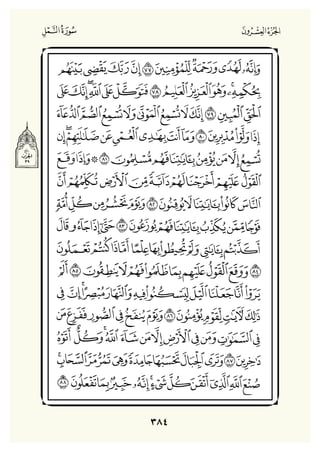 الجُزْءُ العِشْرُونَ
سُورَةُ النَّمْلِ
وَإِنَّهُۥ لَهُدٗى وَرَحۡمَةٞ لِّلۡمُؤۡمِنِينَ ٧٧ إِنَّ رَبَّكَ يَقۡضِي بَيۡنَهُم
بِحُكۡمِهِۦۚ وَهُوَ ٱلۡعَزِيزُ ٱلۡعَلِيمُ ٧٨ فَتَوَكَّلۡ عَلَى ٱللَّهِۖ إِنَّكَ عَلَى
ٱلۡحَقِّ ٱلۡمُبِينِ ٧٩ إِنَّكَ لَا تُسۡمِعُ ٱلۡمَوۡتَىٰ وَلَا تُسۡمِعُ ٱلصُّمَّ ٱلدُّعَآءَ
إِذَا وَلَّوۡاْ مُدۡبِرِينَ ٨٠ وَمَآ أَنتَ بِهَٰدِي ٱلۡعُمۡيِ عَن ضَلَٰلَتِهِمۡۖ إِن
تُسۡمِعُ إِلَّا مَن يُؤۡمِنُ بِـَٔايَٰتِنَا فَهُم مُّسۡلِمُونَ ٨١ ۞ وَإِذَا وَقَعَ
ٱلۡقَوۡلُ عَلَيۡهِمۡ أَخۡرَجۡنَا لَهُمۡ دَآبَّةٗ مِّنَ ٱلۡأَرۡضِ تُكَلِّمُهُمۡ أَنَّ
ٱلنَّاسَ كَانُواْ بِـَٔايَٰتِنَا لَا يُوقِنُونَ ٨٢ وَيَوۡمَ نَحۡشُرُ مِن كُلِّ أُمَّةٖ
فَوۡجٗا مِّمَّن يُكَذِّبُ بِـَٔايَٰتِنَا فَهُمۡ يُوزَعُونَ ٨٣ حَتَّىٰٓ إِذَا جَآءُو قَالَ
أَكَذَّبۡتُم بِـَٔايَٰتِي وَلَمۡ تُحِيطُواْ بِهَا عِلۡمًا أَمَّاذَا كُنتُمۡ تَعۡمَلُونَ
٨٤ وَوَقَعَ ٱلۡقَوۡلُ عَلَيۡهِم بِمَا ظَلَمُواْ فَهُمۡ لَا يَنطِقُونَ ٨٥ أَلَمۡ
يَرَوۡاْ أَنَّا جَعَلۡنَا ٱلَّيۡلَ لِيَسۡكُنُواْ فِيهِ وَٱلنَّهَارَ مُبۡصِرًاۚ إِنَّ فِي
ذَٰلِكَ لَأٓيَٰتٖ لِّقَوۡمٖ يُؤۡمِنُونَ ٨٦ وَيَوۡمَ يُنفَخُ فِي ٱلصُّورِ فَفَزِعَ مَن
فِي ٱلسَّمَٰوَٰتِ وَمَن فِي ٱلۡأَرۡضِ إِلَّا مَن شَآءَ ٱللَّهُۚ وَكُلٌّ أَتَوۡهُ
دَٰخِرِينَ ٨٧ وَتَرَى ٱلۡجِبَالَ تَحۡسَبُهَا جَامِدَةٗ وَهِيَ تَمُرُّ مَرَّ ٱلسَّحَابِۚ
صُنۡعَ ٱللَّهِ ٱلَّذِيٓ أَتۡقَنَ كُلَّ شَيۡءٍۚ إِنَّهُۥ خَبِيرُۢ بِمَا تَفۡعَلُونَ ٨٨
الحزب
٣٩
٣٨٤